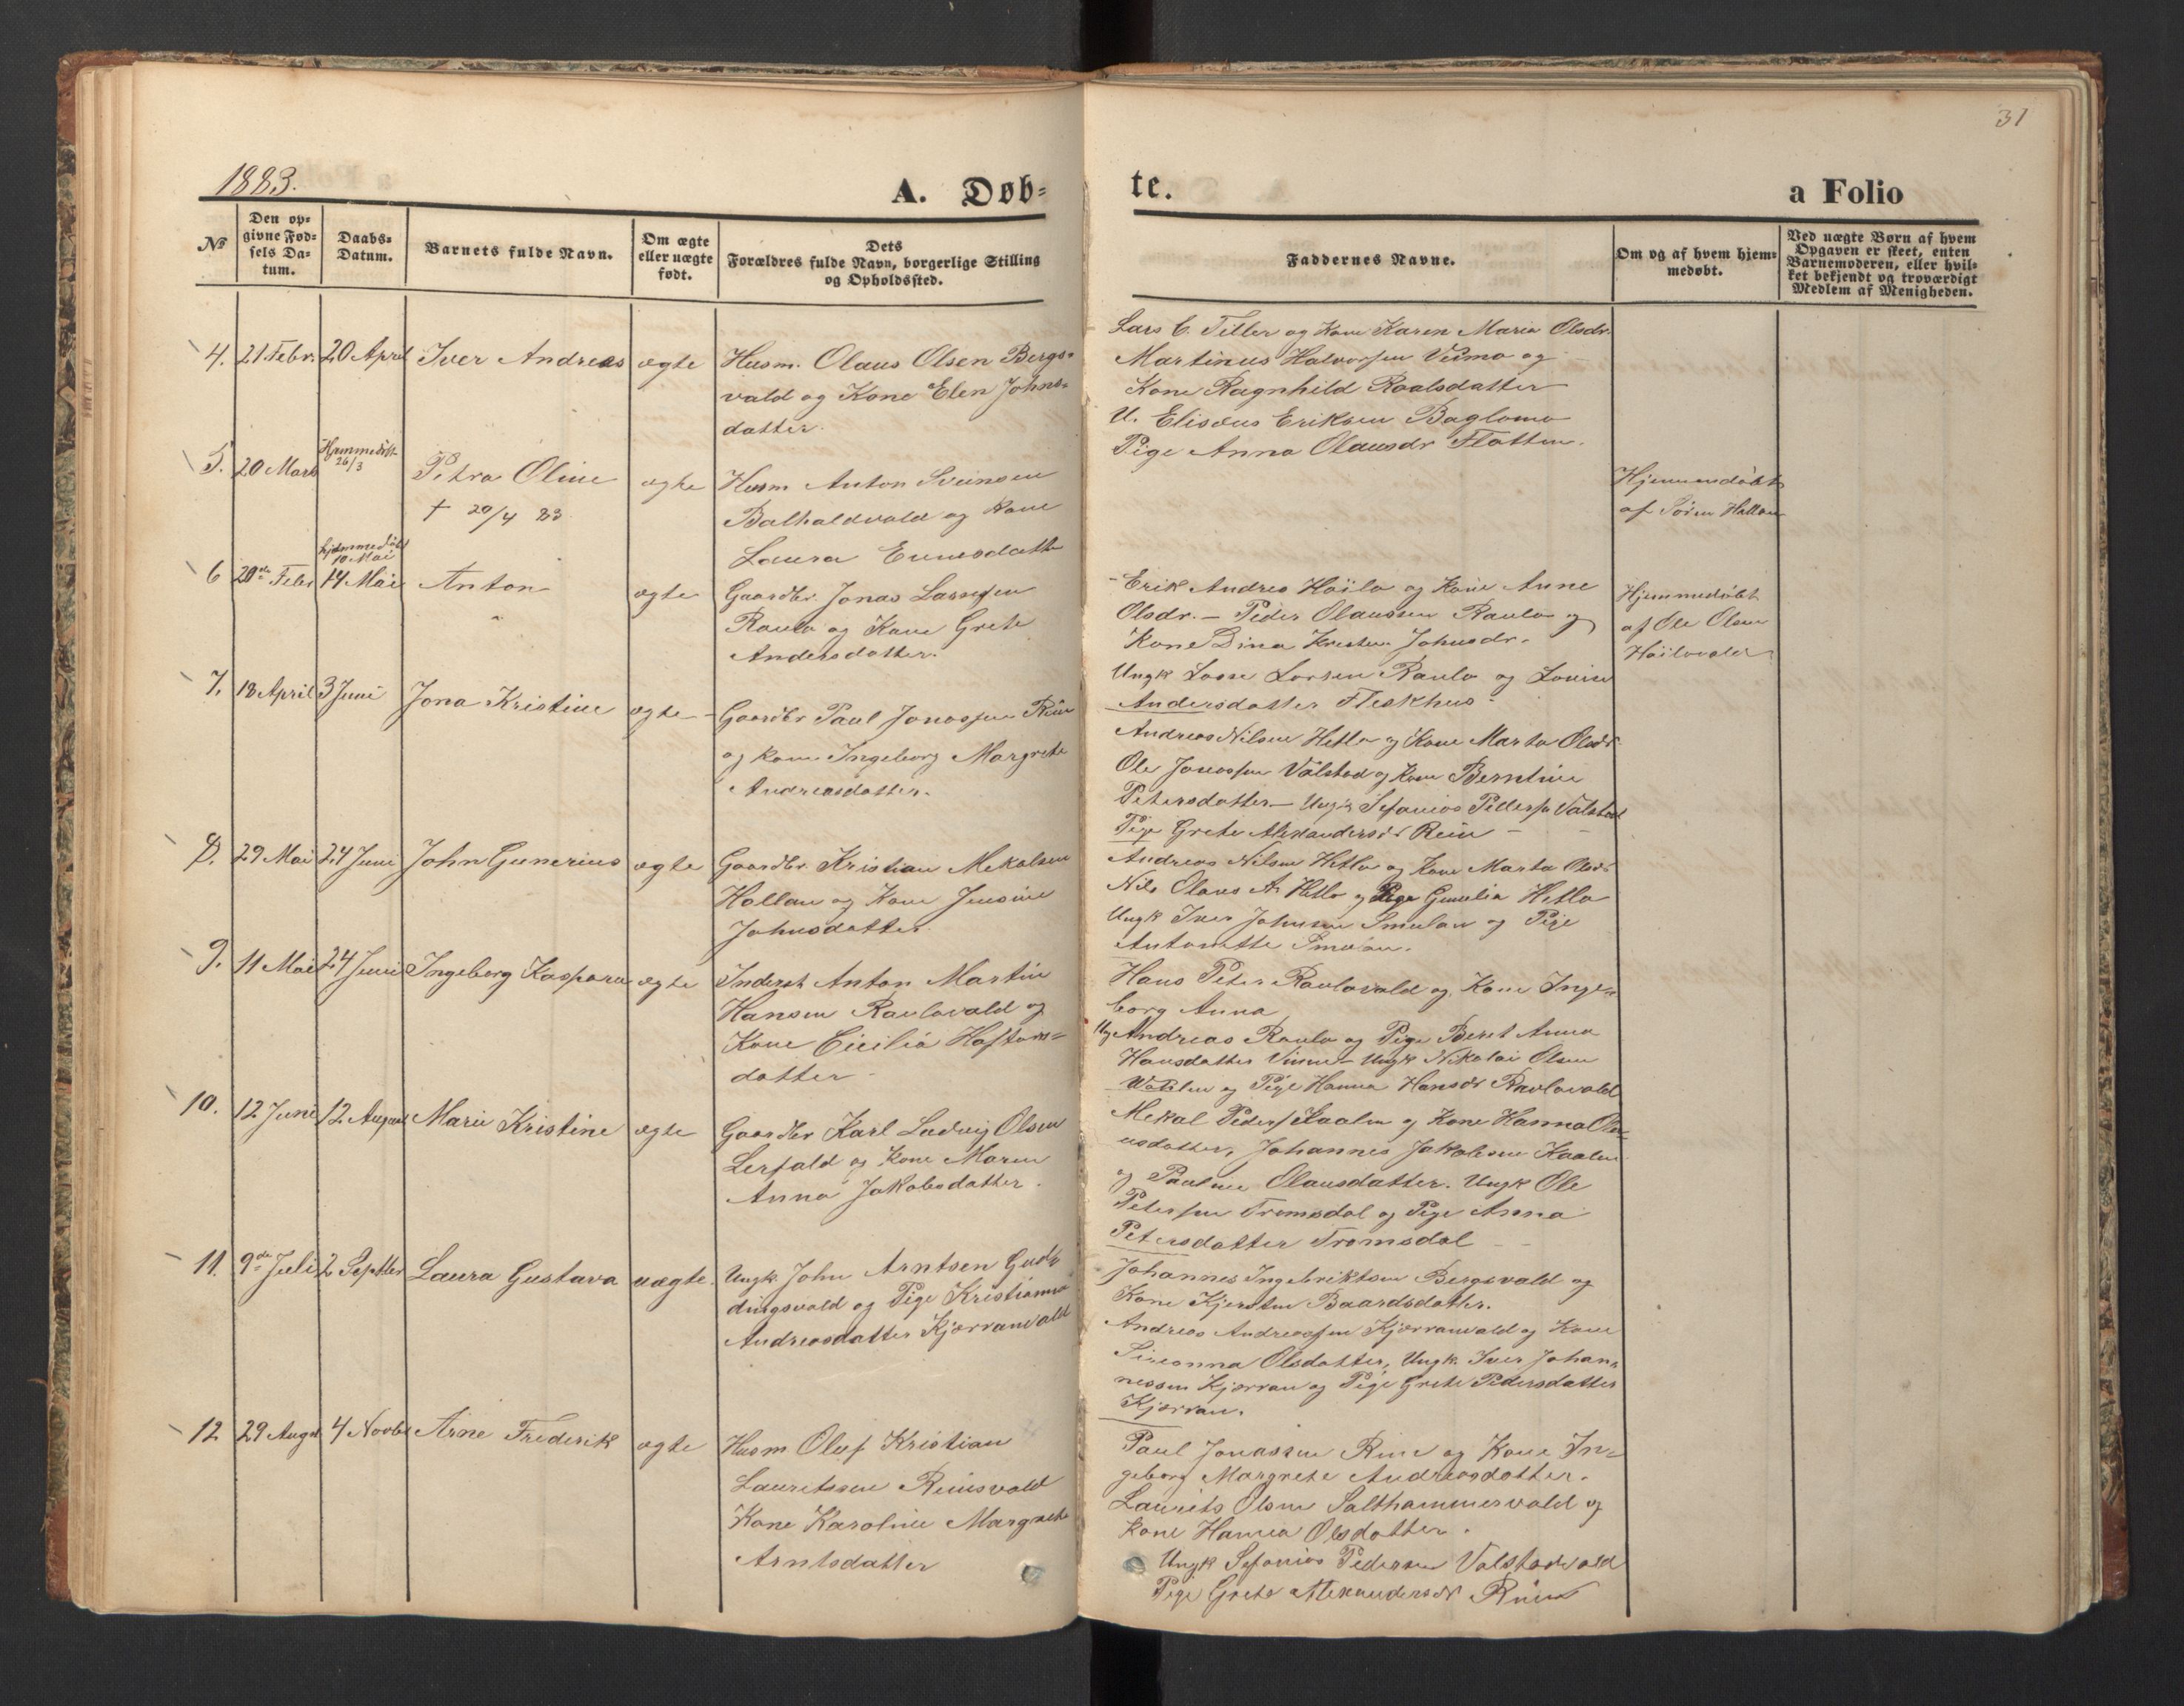 31
1883.
A. Døb-
te.
a Folio
No
Den op-
givne Fød-
sels Da-
tum.
Daabs-
Datum.
Barnets fulde Navn.
Om ægte
eller uægte
født.
Dets
Forældres fulde Navn, borgerlige Stilling
og Opholdssted.
Faddernes Navne.
Om og af hvem hjem-
medøbt.
Ved uægte Børn af hvem
Opgaven er skeet, enten
Barnemoderen, eller hvil-
ket bekjendt og troværdigt
Medlem af Menigheden.
4. 21 Febr. 20 April Iver Andreas ægte
Husm. Olaus Olsen Bergs-
vald og Kone Elen Johns-
datter.
Lars C. Tiller og Kone Karen Maria Olsdr.
Martinus Halvorsen Vismo og
Kone Ragnhild Roalsdatter
U. Elisæus Eriksen Baglomo
Pige Anna Olausdr Flotten.
5. 20 Mars Hjemmedøbt
26/3
Petra Oline ægte
† 20/4 83
Husm Anton Sveinsen
Balhaldvald og Kone
Laura Ennesdatte
Hjemmendøbt
af Søren Hallan
6 20de Febr hjemmedøbt
10 Mai
14 Mai Anton ægte
Gaardbr. Jonas Lassesen
Raulo og Kone Grete
Andersdatter.
Erik Andreo Høilo og Kone Anne
Olsdr. - Peder Olaussen Raulo og
Kone Dina Kristin Johnsdr.
Ungk Lasse Larsen Raulo og Lovise
Andersdatter Fleskhus.
Hjemmedøbt
af Ole Olsen
Høilovald
7. 18 April 3 Juni Jona Kristine ægte
Gaardbr Paul Jonassen Rein
og Kone Ingeborg Margrete
Andreasdatter.
Andreas Nilsen Hetlo og Kone Marta Olsdr
Ole Jonassen Valstad og Kone Berntine
Petersdatter - Ungk Sefanias Peders Valstad
Pige Grete Alexandersdr Rein
8. 29 Mai 24 Juni John Gunerius ægte
Gaardbr Kristian Mekalsen
Hallan og Kone Jensine
Johnsdatter.
Andreas Nilsen Hetlo og Kone Marta Olsdr
Nils Olaus A. Hetlo og Pige Gunelia Hetlo
Ungk Iver Johnsen Smulan og Pige
Antonette Smulan.
9. 11 Mai 24 Juni Ingeborg Kaspara ægte
Inderst Anton Martin
Hansen Raulovald og
Kone Cicilia Haftors-
datter
Hans Peter Raulovald og Kone Inge-
borg Anna
Ug Andreas Raulo og Pige Beret Anna
Hansdatter Vinne - Ungk Nikolai Olsen
og Pige Hanna Hansdr Raulovald
10. 12 Juni 12. August Marie Kristine ægte
Gaardbr Karl Ludvig Olsen
Lerfald og Kone Maren
Anna Jakobsdatter.
Mekal Peders Kaalen og Kone Hanna Ole-
usdatter, Johannes Jakobsen Kaalen
og Pauline Olausdatter. Ungk Ole
Petersen Tromsdal og Pige Anna
Petersdatter Tromsdal
11. 9de Juli 2 Septbr Laura Gustava uægte.
Ungk. John Arntsen Gud-
dingsvald og Pige Kristianna
Andreasdatter Kjærranvald
Johannes Ingebriktsen Bergsvald og
Kone Kjersten Baardsdatter.
Andreas Andreassen Kjærranvald og Kone
Sirianna Olsdatter, Ungk. Iver Johan-
nessen Kjærran og Pige Grete Pedersdatter
Kjærran.
12 29 Augst 4 Novbr Arne Frederik ægte
Husm Oluf Kristian
Lauritssen Reinsvald
Kone Karoline Margrete
Arntsdatter
Paul Jonassen Rein og Kone In-
geborg Margrete Andreasdatter.
Laurits Olsen Salthammervald og
Kone Hanna Olsdatter.
Ungk Sefanias Pedersen Valstadvald
Pige Grete Alexandersdr Rein